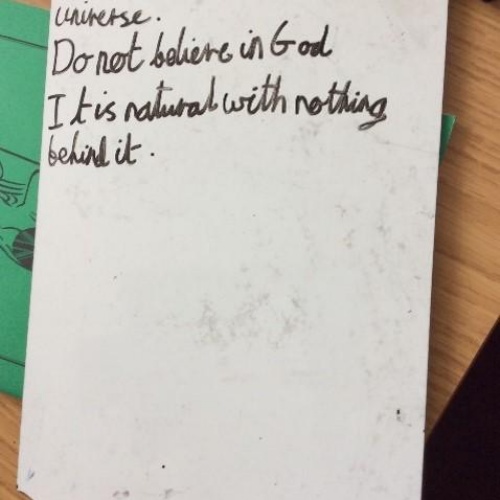 universe.
Do not believe in God
It is natural with nothing
behind it.